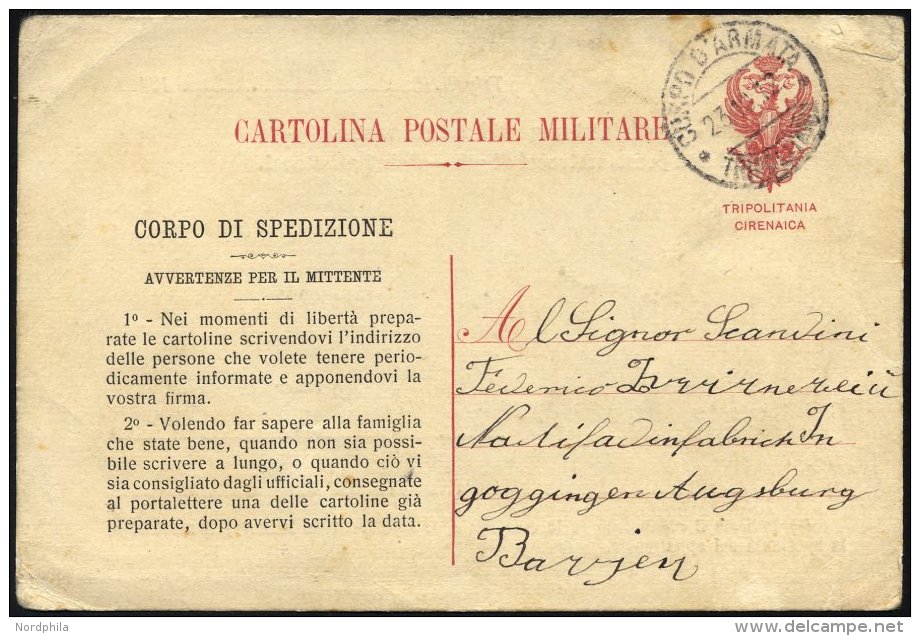 CORPO D'ARMATA
CARTOLINA POSTALE MILITARE
TRIPOLITANIA
CIRENAICA
CORPO DI SPEDIZIONE
AVVERTENZE PER IL MITTENTE
1º - Nei momenti di libertà prepa-
rate le cartoline scrivendovi l'indirizzo
delle persone che volete tenere perio-
dicamente informate e apponendovi la
vostra firma.
2º - Volendo far sapere alla famiglia
che state bene, quando non sia possi-
bile scrivere a lungo, o quando ciò vi
sia consigliato dagli ufficiali, consegnate
al portalettere una delle cartoline già
preparate, dopo avervi scritto la data.
Al Signor Scandini
Federico
In
goggingen Augsburg
Barjen
Nordphila
delcampe.net